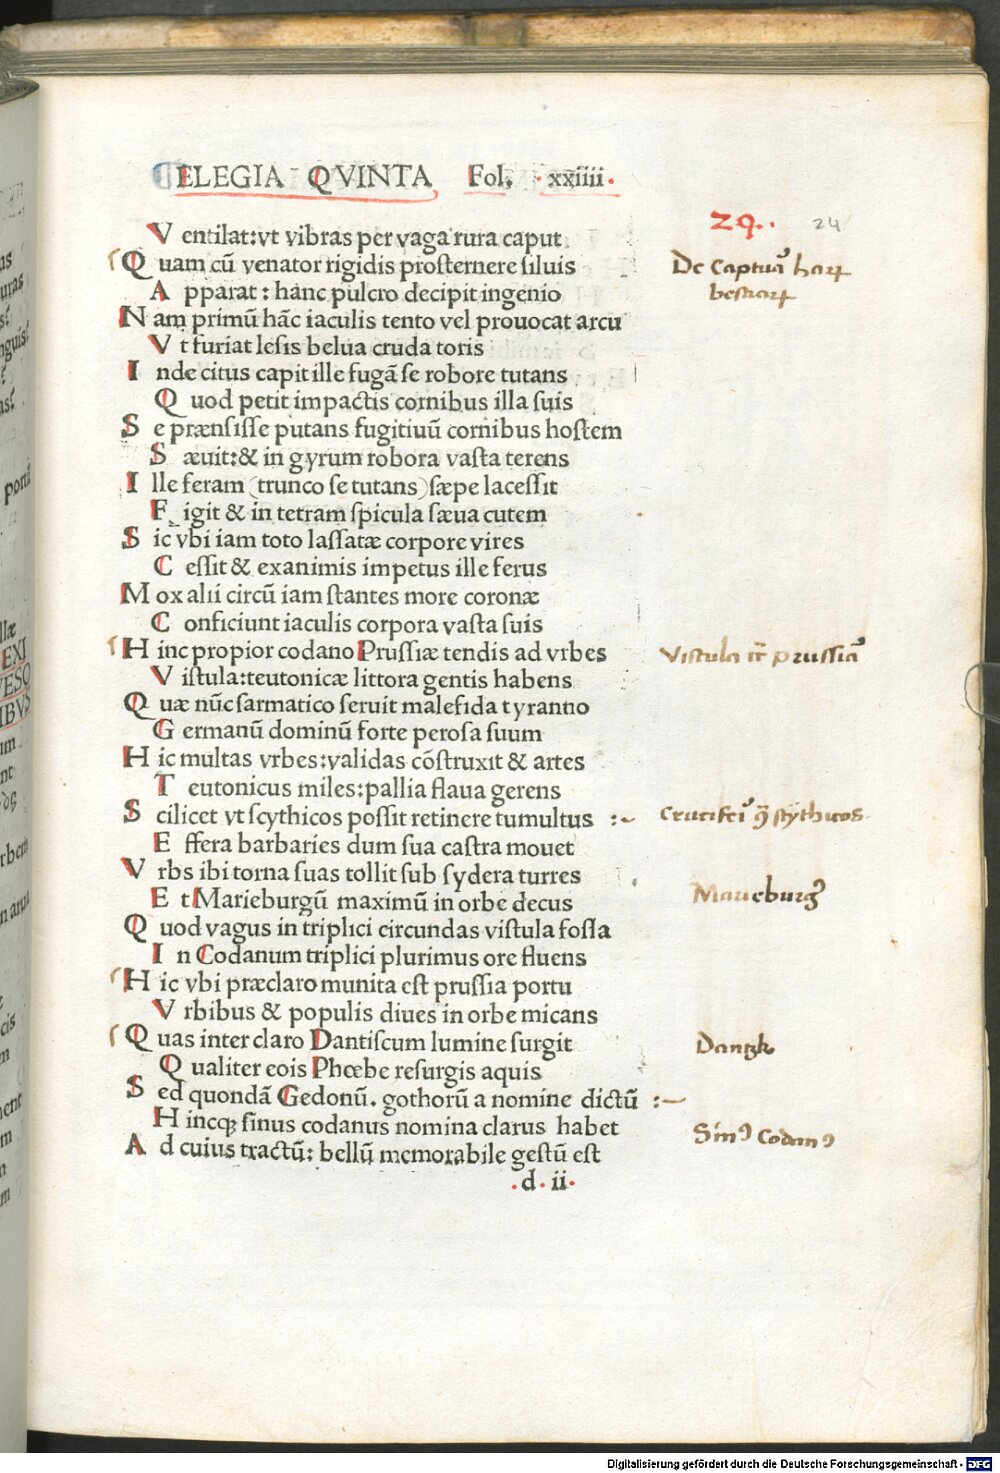 ELEGIA QVINTA Fol. xxiiii.
29. 24
V entilat:vt vibras per vaga rura caput
Q uam cū venator rigidis prosternere siluis
De Captuā harꝝ
A pparat : hanc pulcro decipit ingenio
bestiarꝝ
N am primū hāc iaculis tento vel prouocat arcu
V t furiat lesis belua cruda toris
I nde citus capit ille fugā se robore tutans
Q uod petit impactis cornibus illa suis
S e prænsisse putans fugitiuū cornibus hostem
S æuit:& in gyrum robora vasta terens
I lle feram (trunco se tutans) sæpe lacessit
F igit & in tetram spicula sæua cutem
S ic vbi iam toto lassatæ corpore vires
C essit & exanimis impetus ille ferus
M ox alii circū iam stantes more coronæ
C onficiunt iaculis corpora vasta suis
H inc propior codano Prussiæ tendis ad vrbes
Vistula prussiā
V istula:teutonicæ littora gentis habens
Q uæ nūc sarmatico seruit malefida tyranno
G ermanū dominū forte perosa suum
H ic multas vrbes:validas cōstruxit & artes
T eutonicus miles:pallia flaua gerens
S cilicet vt scythicos possit retinere tumultus :~
Cruciferi scythicos
E ffera barbaries dum sua castra mouet
V rbs ibi torna suas tollit sub sydera turres
E t Marieburgū maximū in orbe decus
Marieburg
Q uod vagus in triplici circundas vistula fossa
I n Codanum triplici plurimus ore fluens
H ic vbi præclaro munita est prussia portu
V rbibus & populis diues in orbe micans
Q uas inter claro Dantiscum lumine surgit
Dantzk
Q ualiter eois Phœbe resurgis aquis
S ed quondā Gedonū. gothorū a nomine dictū :~
H incq; sinus codanus nomina clarus habet
Sinꝰ Codanꝰ
A d cuius tractū: bellū memorabile gestū est
.d.ii.
Digitalisierung gefördert durch die Deutsche Forschungsgemeinschaft - DFG